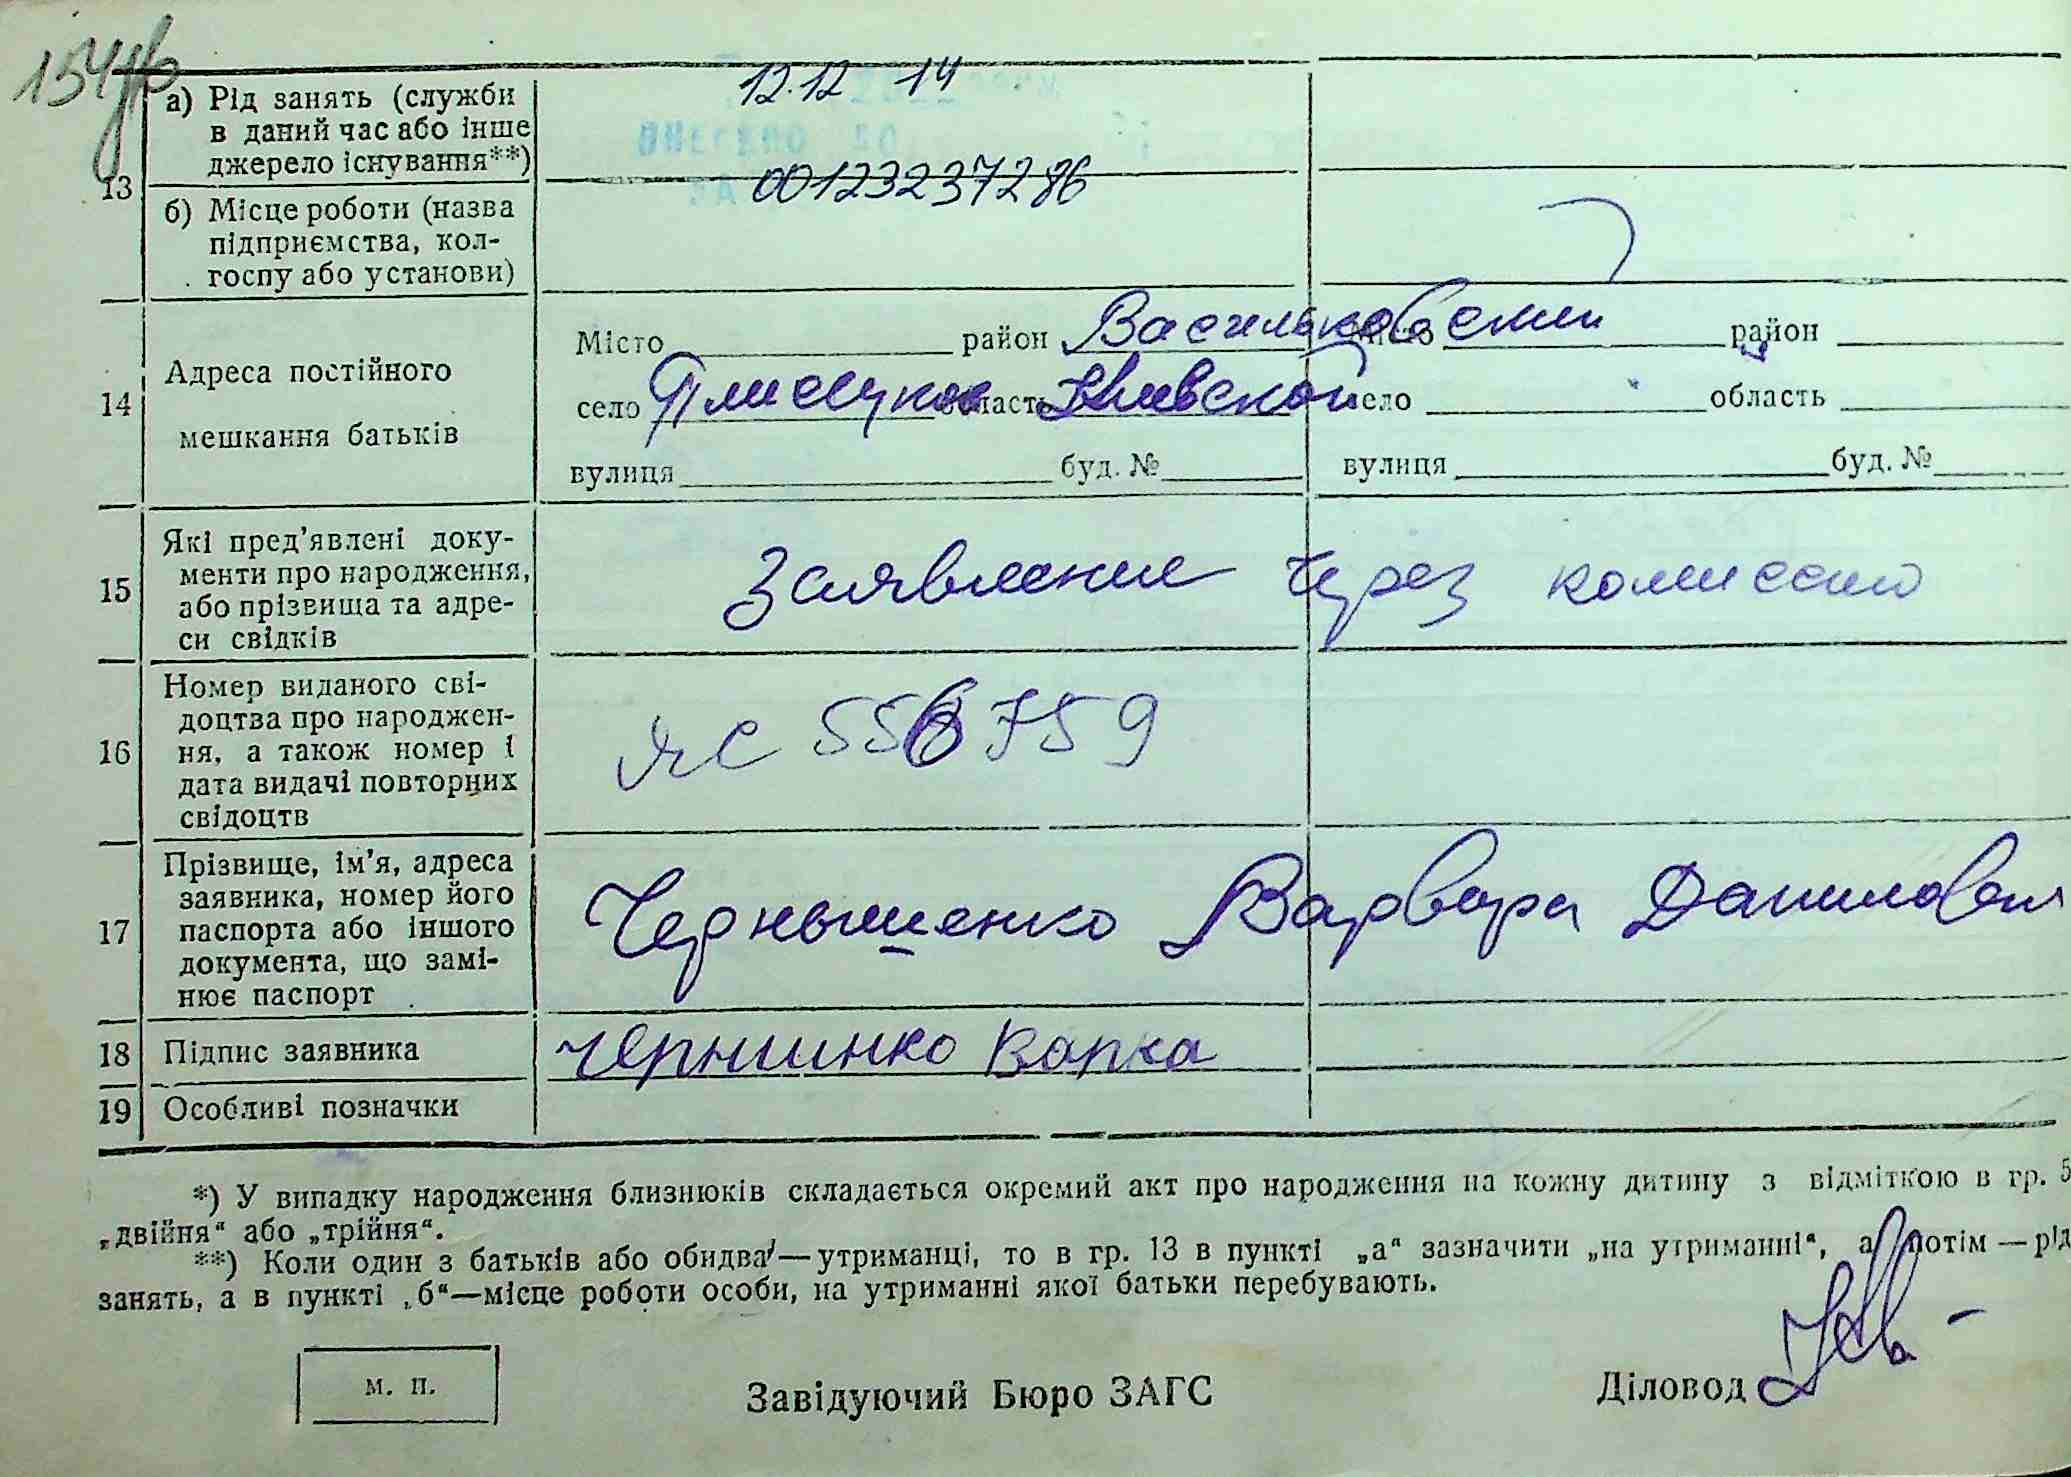 12.12 14
а) Рід занять (служби
в даний час або інше
джерело існування**)
ВНЕСЕНО ДО
00123237286
13
б) Місце роботи (назва
підприємства, кол-
госпу або установи)
14
Адреса постійного
мешкання батьків
Місто район Васильковский район
село Плисецкое область Киевской село область
вулиця буд. № вулиця буд. №
15
Які пред’явлені доку-
менти про народження,
або прізвища та адре-
си свідків
Заявление через комиссию
16
Номер виданого сві-
доцтва про народжен-
ня, а також номер і
дата видачі повторних
свідоцтв
ЯС 556759
17
Прізвище, ім’я, адреса
заявника, номер його
паспорта або іншого
документа, що замі-
нює паспорт
Чернышенко Варвара Даниловна
18 Підпис заявника Чернишнко Варка
19 Особливі позначки
*) У випадку народження близнюків складається окремий акт про народження на кожну дитину з відміткою в гр. 5
„двійня“ або „трійня“.
**) Коли один з батьків або обидва — утриманці, то в гр. 13 в пункті „а“ зазначити „на утриманні“, а потім — рід
занять, а в пункті „б“ — місце роботи особи, на утриманні якої батьки перебувають.
м. п.
Завідуючий Бюро ЗАГС
Діловод